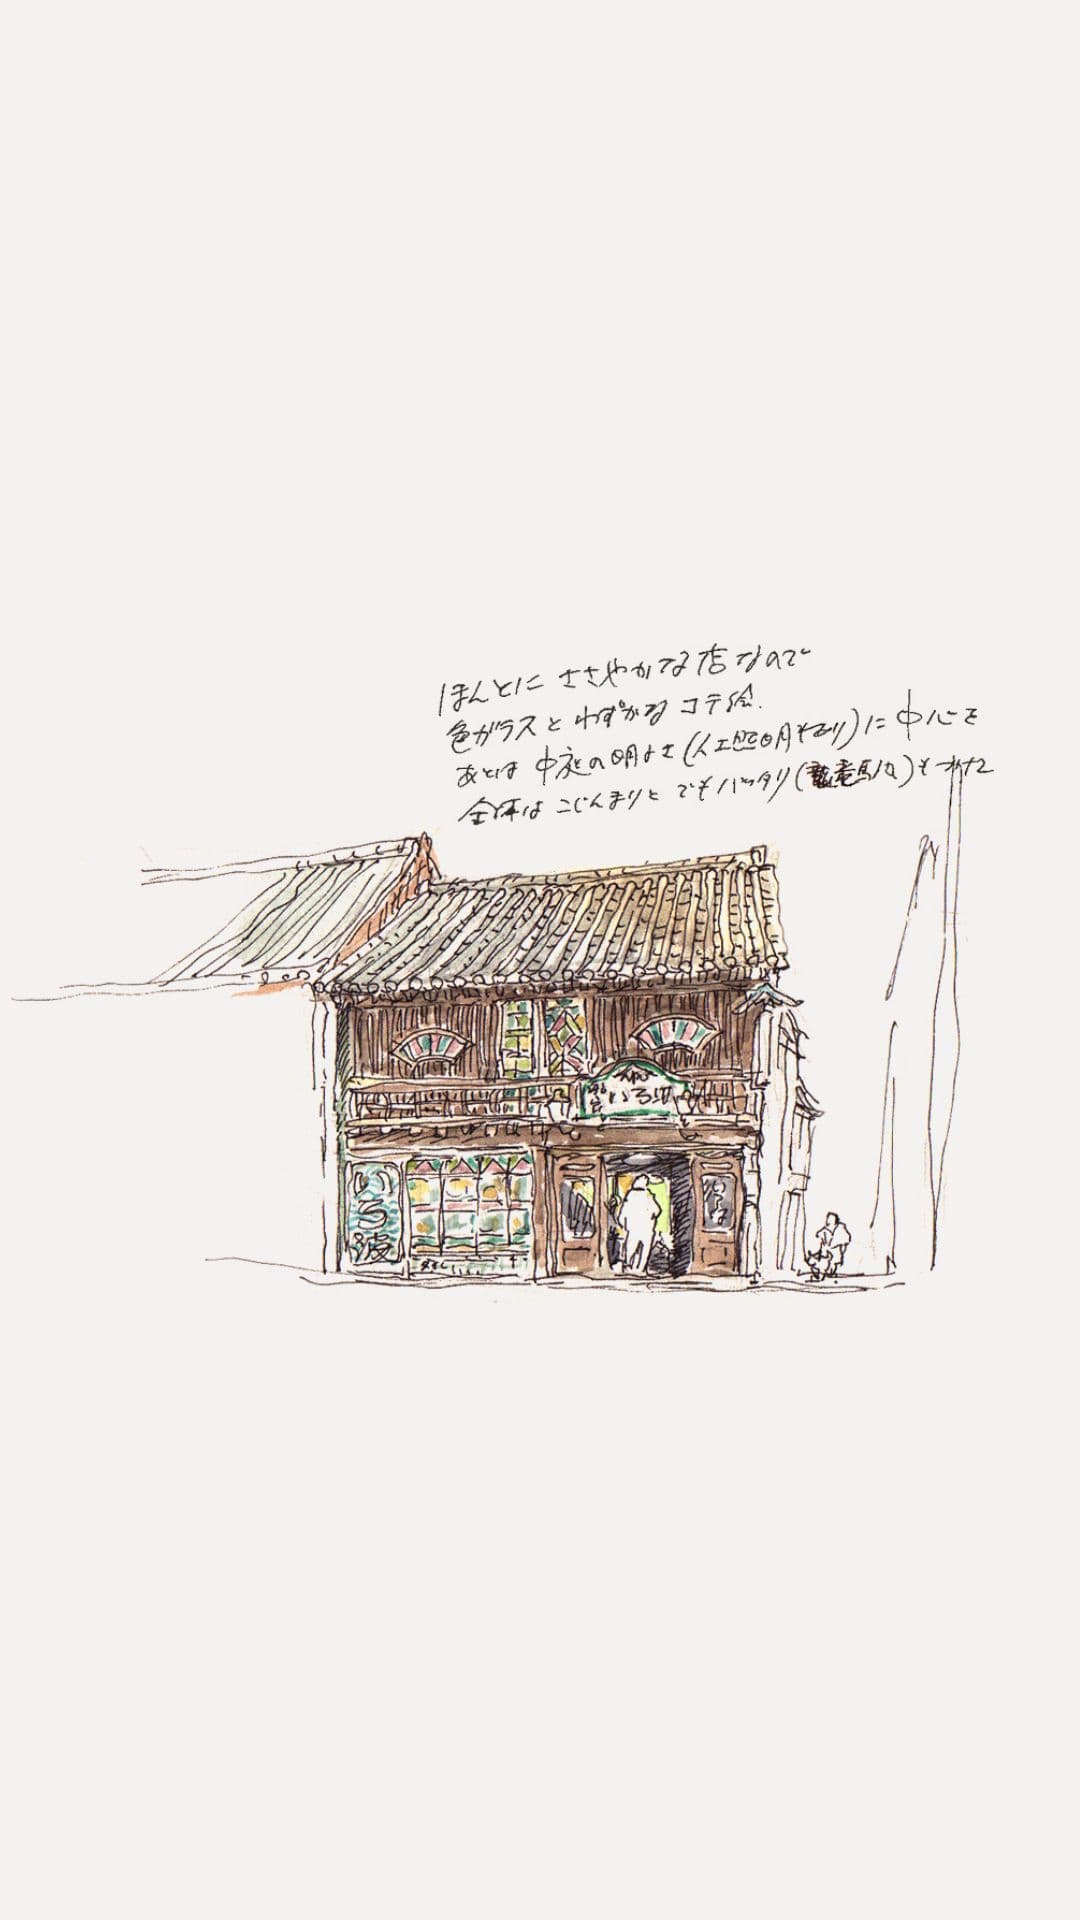 ほんとに ささやかな店なので
色ガラスと わずかな コテ絵.
あとは 中庭の明るさ(人工照明もあり)に中心を
全体は こじんまりと でもバッタリ(
いろは
いろ波